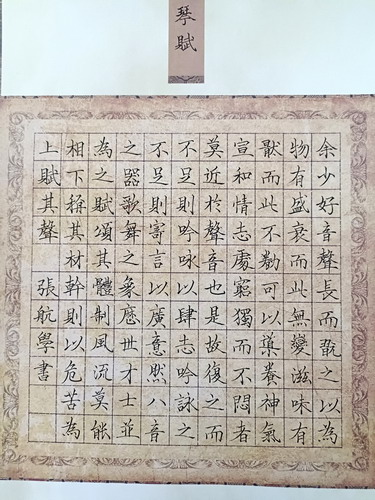 琴賦
余少好音聲長而翫之以為
物有盛衰而此無變滋味有
猒而此不勌可以導養神氣
宣和情志處窮獨而不悶者
莫近於聲音也是故復之而
不足則吟咏以肆志吟詠之
不足則寄言以廣意然八音
之器歌舞之象歷世才士並
為之賦頌其體制風流莫能
相下稱其材幹則以危苦為
上賦其聲 張航學書